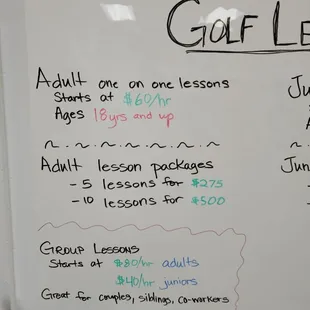 GOLF LE
Adult one on one lessons
Starts at $60/hr
Ages 18yrs and up
Adult lesson packages
- 5 lessons for $275
- 10 lessons for $500
GROUP LESSONS
Starts at $80/hr adults
$40/hr juniors
Great for couples, siblings, co-workers
Ju
Jun